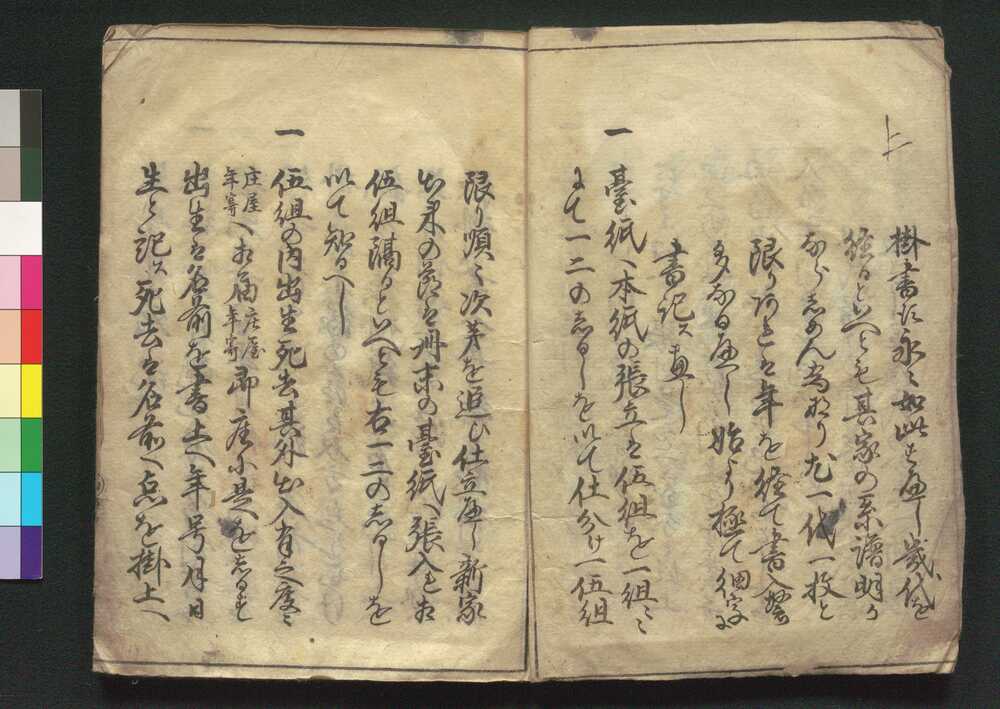 上
掛書ニ永々如此すへし幾代を
経るといへとも其家の系譜明か
ならしめん為なり尤一代一枚と
限り候とも年を経て書入繁
多なるへし始より極て細字に
書記ス へし
一 臺紙へ本紙の張立は伍組を一組ニ
にて一二のしるしを以て仕分け一伍組
限り順々次第を追ひ仕立へし新家
出来の節は冊末の臺紙へ張入もお
伍組隔るといへとも右一二のしるしを
以て知るへし
一 伍組の内出生死去其外出入有之度ニ
庄屋年寄へ相届庄屋年寄即座に是をしるす
出生は名前を書上へ年号月日
生と記ス死去は名前へ点を掛上へ